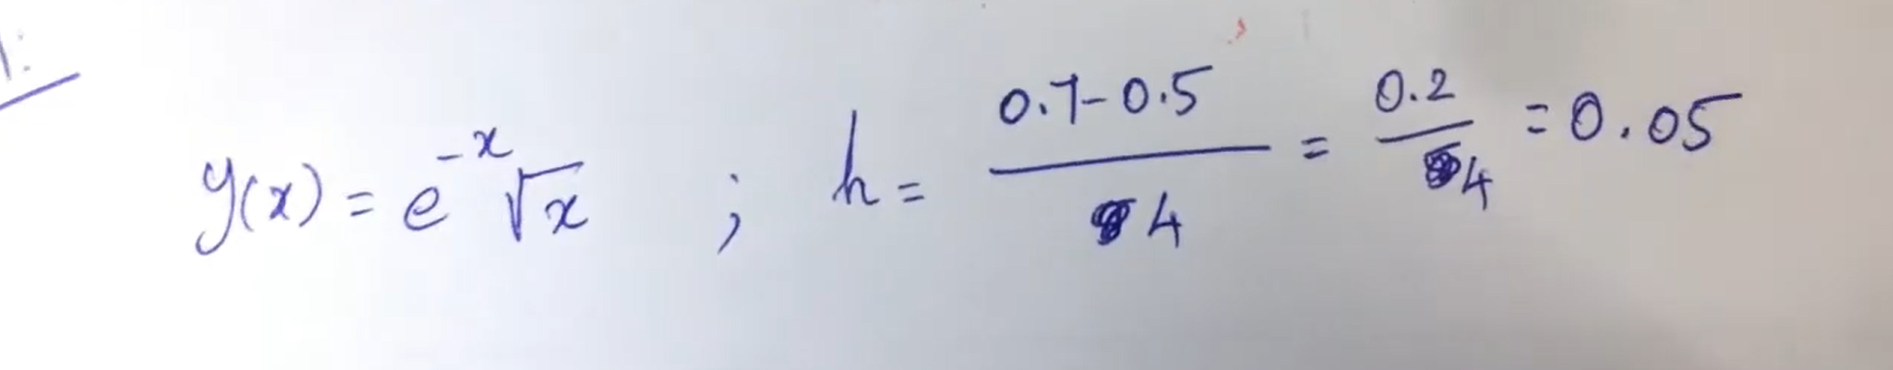 1:
y(x) = e^{-x} √x ; h = \frac{0.7-0.5}{4} = \frac{0.2}{4} = 0.05